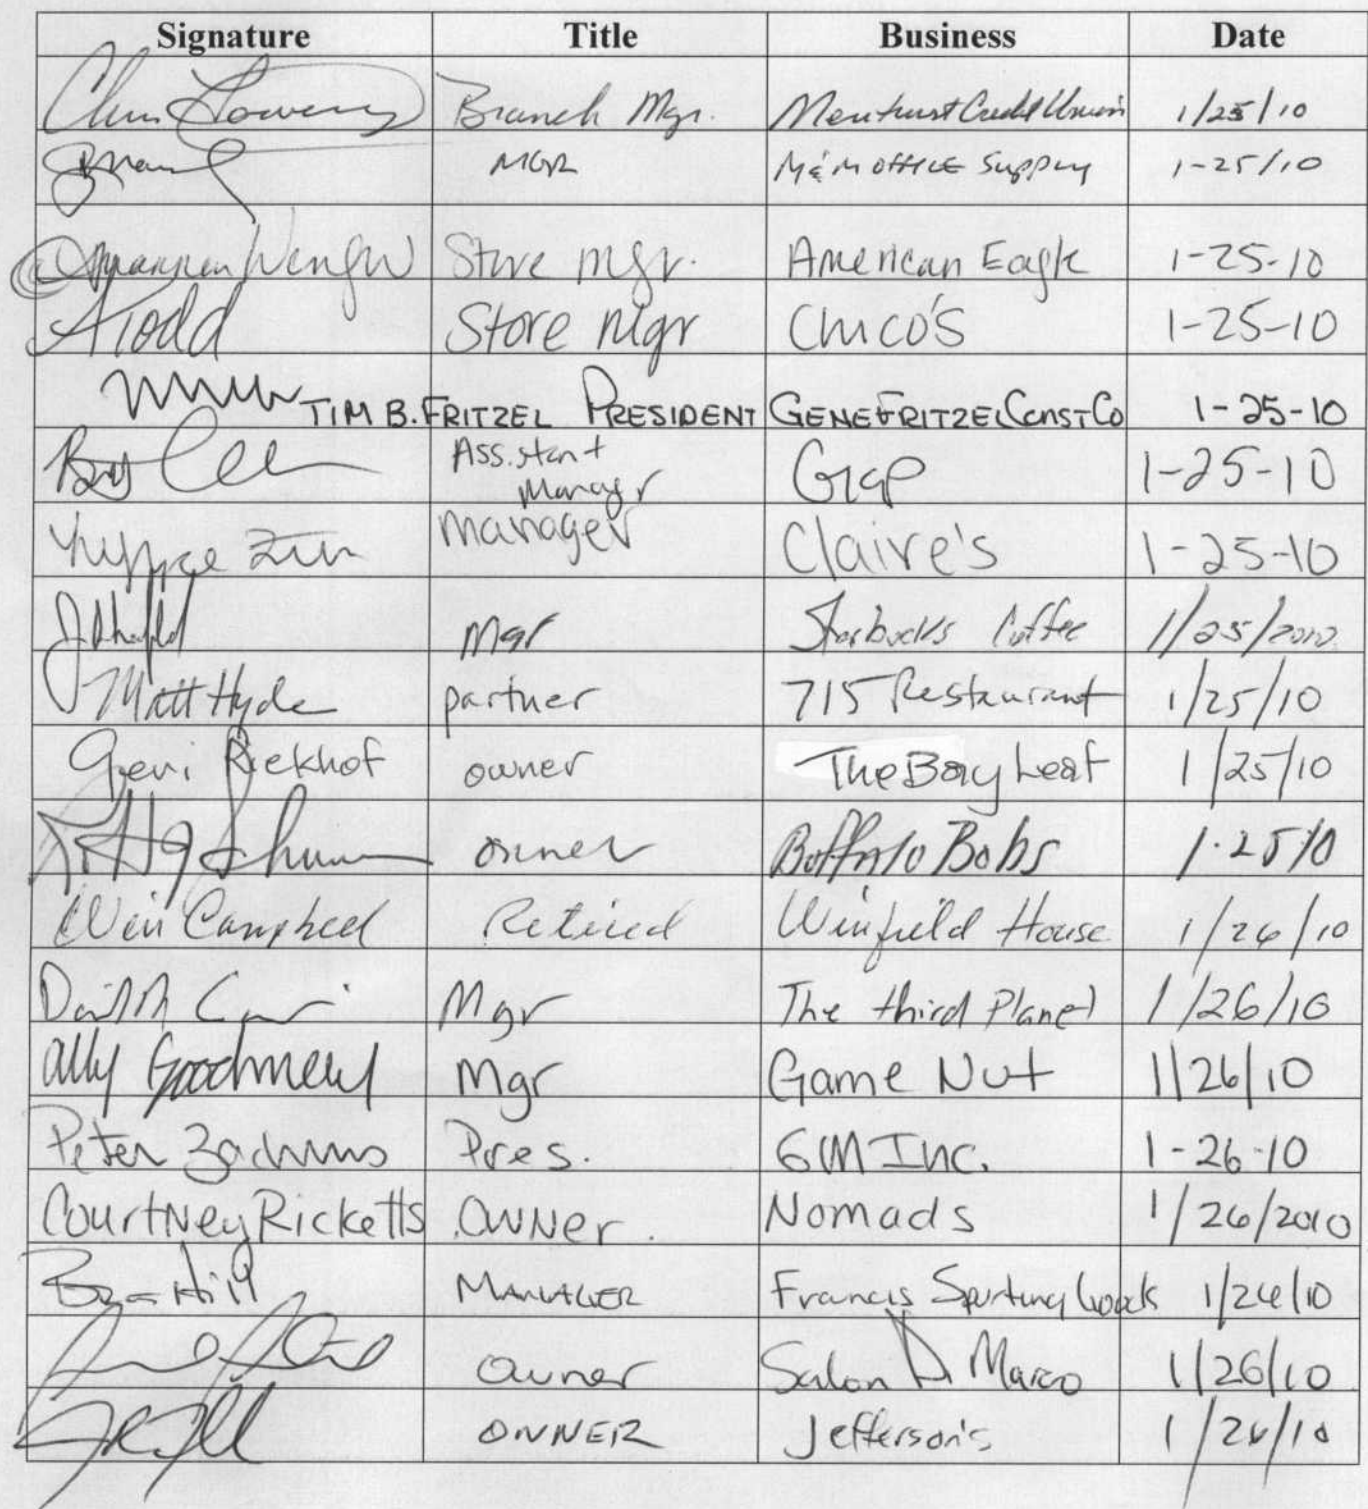 Signature Title Business Date
Branch Mgr. Meritrust Credit Union 1/25/10
MGR M&M OFFICE Supply 1-25/10
Store mgr. American Eagle 1-25-10
ATodd Store Mgr Chico's 1-25-10
TIM B. FRITZEL PRESIDENT GENE FRITZEL CONST CO 1-25-10
Assistant Manager Gap 1-25-10
Manager Claire's 1-25-10
Mgr Starbucks Coffee 1/25/2010
Matt Hyde partner 715 Restaurant 1/25/10
Geri Riekhof owner The Bay Leaf 1/25/10
owner Buffalo Bobs 1-25/10
Win Campbell Retired Winfield House 1/26/10
Mgr The third Planet 1/26/10
Ally Mgr Game Nut 1/26/10
Peter Pres. GM Inc. 1-26-10
Courtney Ricketts Owner. Nomads 1/26/2010
Hill MANAGER Francis Sporting Goods 1/26/10
owner Salon Di Marco 1/26/10
OWNER Jefferson's 1/26/10